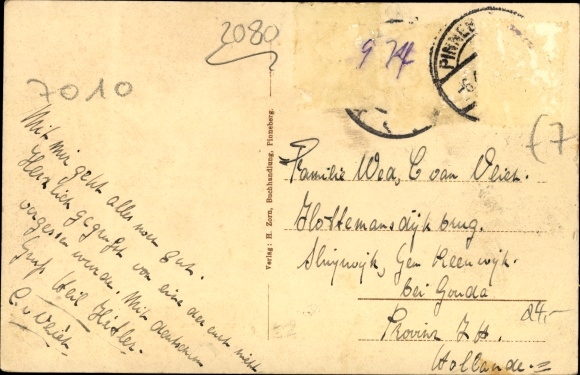 2080
7010
9 Kf
PINNEB
(7
Mit mir geht alles noch gut.
Herzlich gegrüsst von eine der euch nicht
vergessen werden. Mit deutschem
Gruß Heil Hitler.
C. v Veien
Verlag: H. Zorn, Buchhandlung, Pinneberg.
Familie Wed, C van Veien.
Hottemansdijk brug.
Sluipwijk, Gem Reeuwijk.
bei Gouda
24,-
Provinz Z.H.
Hollande.=